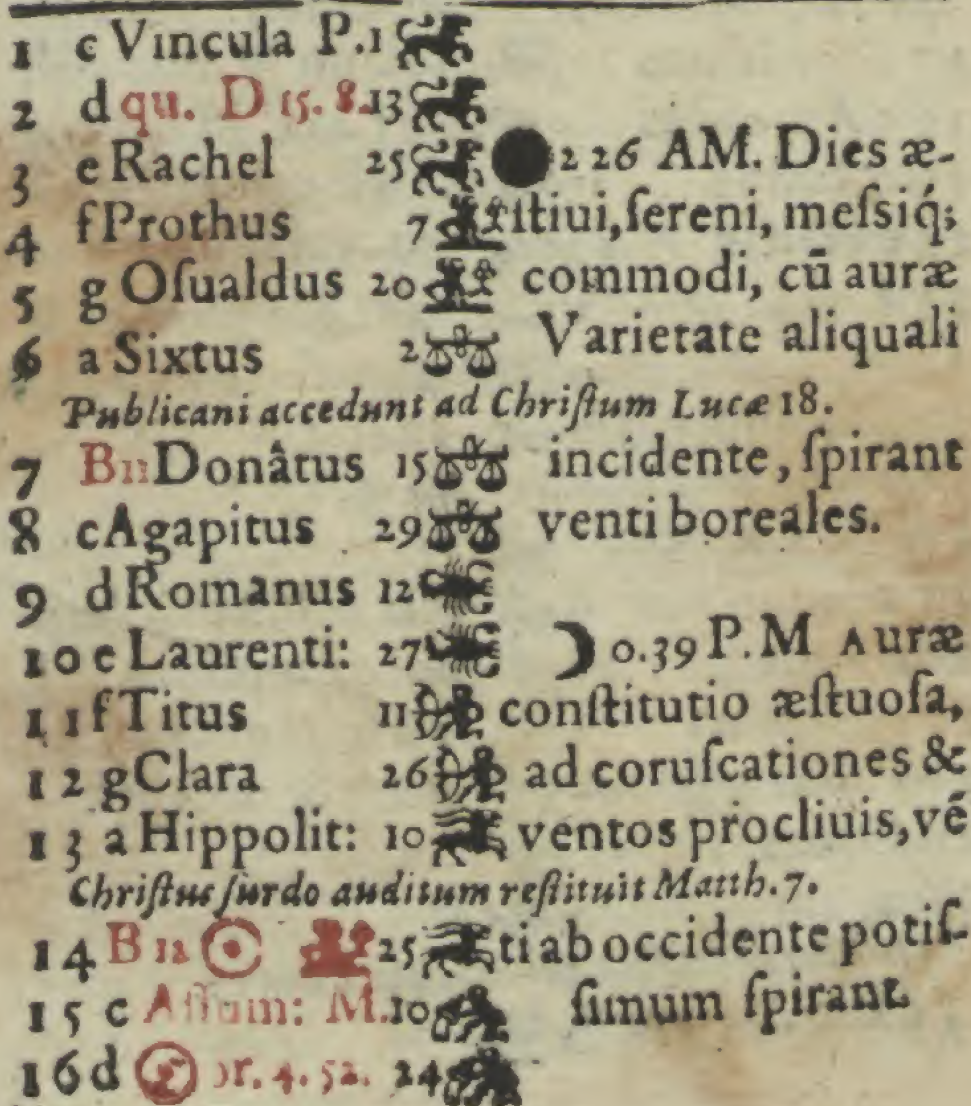 1 c Vincula P. 1
2 d qu. D 15. 8. 13
3 e Rachel 25 2 26 AM. Dies æ-
4 f Prothus 7 ſtiui, ſereni, meſsiq́;
5 g Oſualdus 20 commodi, cū auræ
6 a Sixtus 2 Varietate aliquali
Publicani accedunt ad Chriſtum Lucæ 18.
7 B 11 Donâtus 15 incidente, ſpirant
8 c Agapitus 29 venti boreales.
9 d Romanus 12
10 e Laurenti: 27 ☽ 0.39 P.M Auræ
11 f Titus 11 conſtitutio æſtuoſa,
12 g Clara 26 ad coruſcationes &
13 a Hippolit: 10 ventos procliuis, vē
Chriſtus ſurdo auditum reſtituit Matth. 7.
14 B 12 ☉ 25 ti ab occidente potiſ-
15 c Aſſum: M. 10 ſimum ſpirant
16 d or. 4. 52. 24